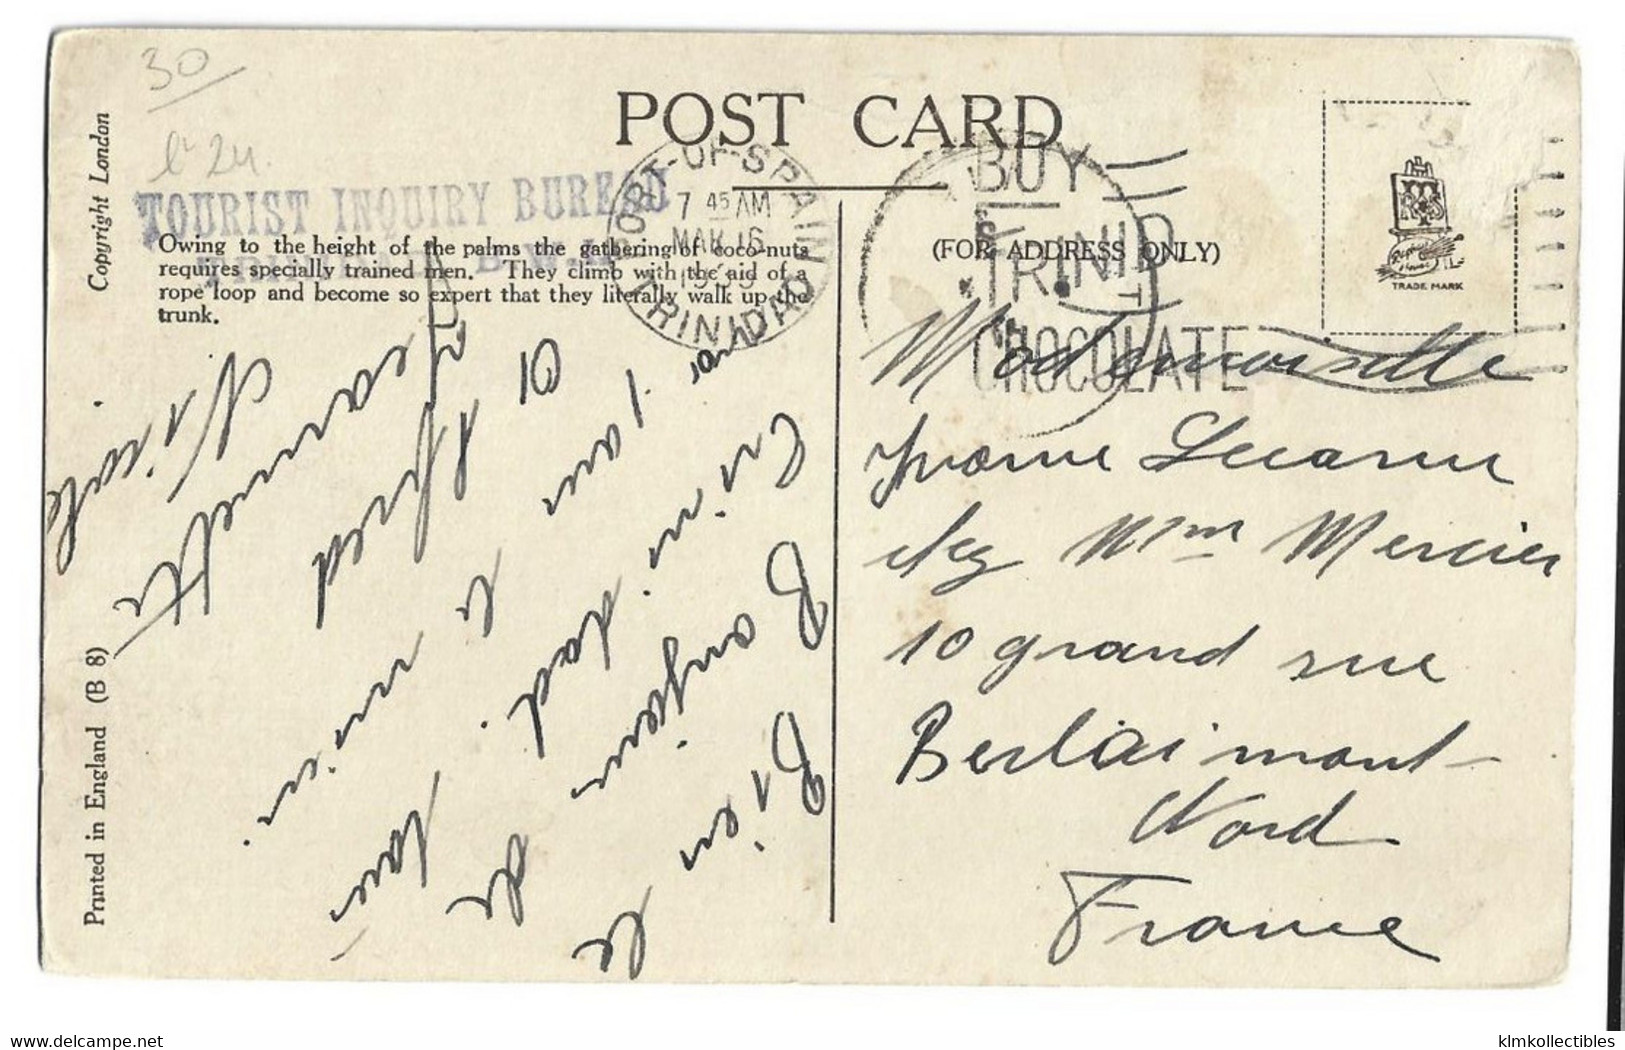 30
POST CARD
Copyright London
TOURIST INQUIRY BUREAU
PORT-OF-SPAIN
7 45 AM
MAR 16
TRINIDAD
BUY
TRINIDAD
CHOCOLATE
Owing to the height of the palms the gathering of coco-nuts
requires specially trained men. They climb with the aid of a
rope loop and become so expert that they literally walk up the
trunk.
(FOR ADDRESS ONLY)
TRADE MARK
Printed in England (B 8)
le
Bien
de
Bonjour
Trinidad.
Alfred
Jeannette
Nicole
Mademoiselle
Yvonne Lecanne
chez Mme Mercier
10 grand rue
Berlaimont
Nord
France
klmkollectibles